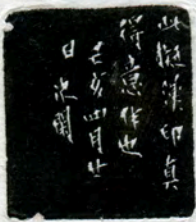 此擬漢印真
得意作也
亥四月廿
日次閑